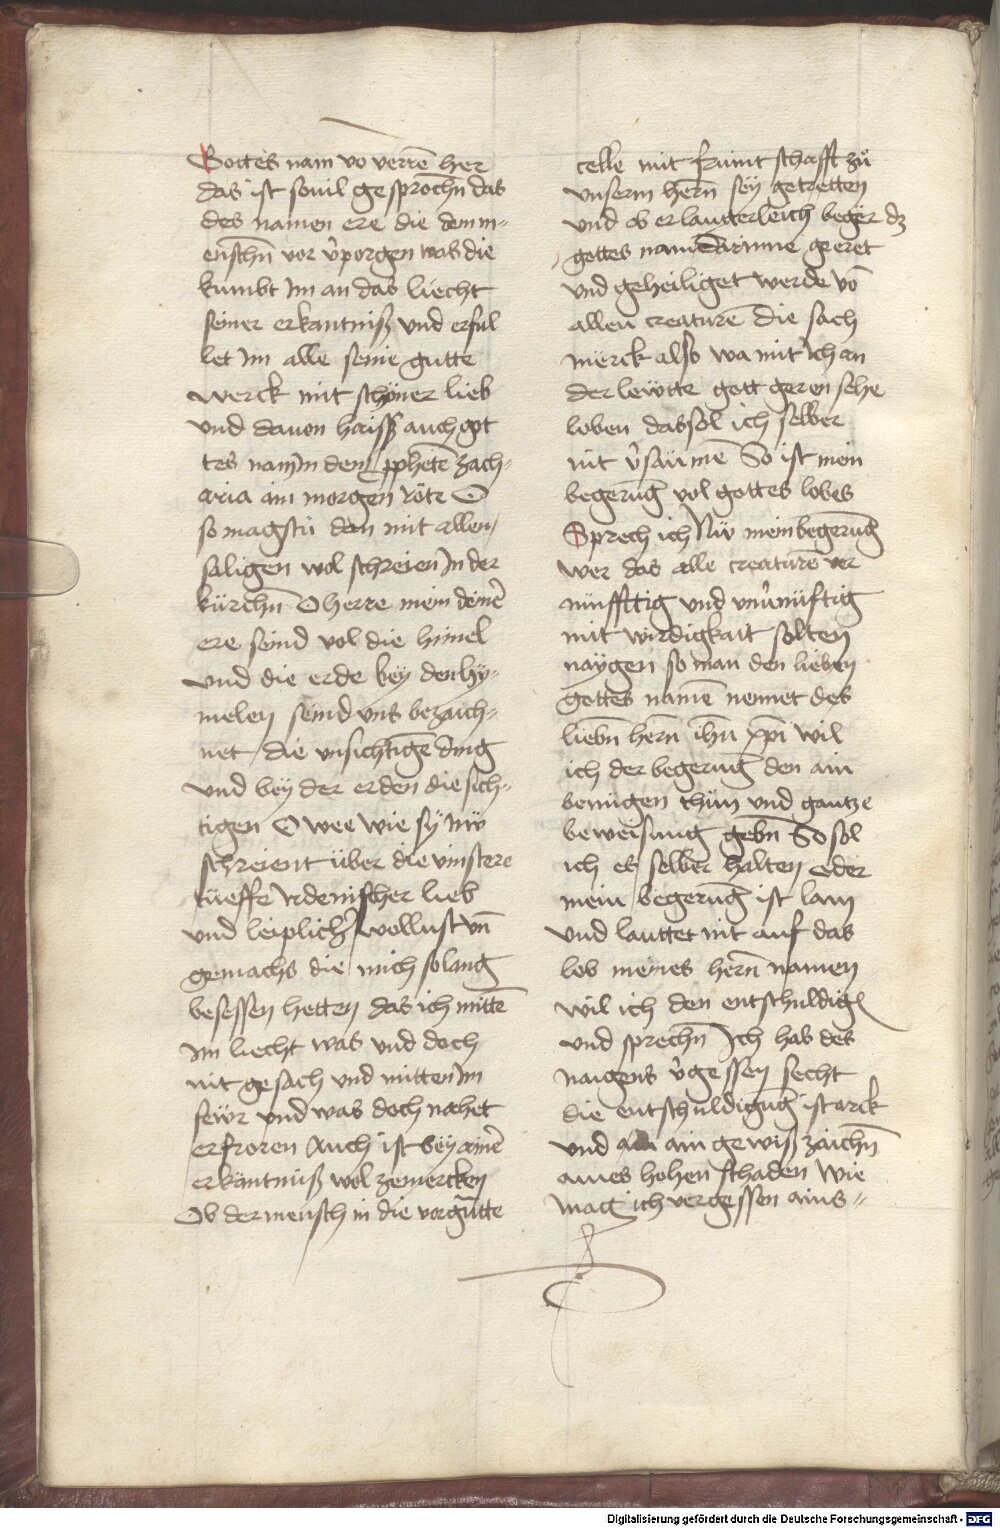 Gottes nam vō verrē her
das ist souil gesprochn̄ das
des namen ere die dem m-
enschn̄ vor v̉porgen was die
kumbt Im an das liecht
seiner erkantniß vnd erful
let Im alle seine gutte
werck mit schöner lieb
vnd dauon haiss auch got
tes nam In dem ꝓphetē zach-
aria ain morgen röte O
so magstu dan mit allen
säligen wol schreien In der
kürchn̄ O herre mein deinē
ere seind vol die himel
vnd die erde bey den hy-
melen seind vns bezaich-
net die vnsichtigē ding
vnd bey der erden die sich-
tigen O wee wie sy nw̄
schreient über die vinstere
tüeffe Irdenischer lieb
vnd leiplichr̄ wollust vn̄
gemachs die mich solang
besessen hetten das ich mittē
Im liecht was vnd doch
nit gesach vnd mitten Im
fewr vnd was doch nahet
erfroren Auch ist bey ainē
erkäntniß wol zemercken
Ob der mensch in die vorgn̄tte
celle mit frünt schafft zů
vnserm hern̄ sey getretten
vnd ob er lautterleich beger dz
gottes namē darinne geeret
vnd geheiliget werde vō
allen creaturē die sach
merck also wa mit ich an
der lewtte gott geren sehe
loben das sol ich selber
nit v̉säumē So ist mein
begerūg vol gottes lobes
Sprech ich Nw mein begerūg
wer das alle creaturē ver
nünfftig vnd vnv̉nüftig
mit wirdigkait solten
naÿgen so man den lieben
gottes namē nennet des
liebn̄ hern̄ ihū xp̄i wil
ich der begerūg den ain
benügen thün vnd gantze
beweisung gebn̄ So sol
ich es selber halten Oder
mein begerūg ist lam
vnd lauttet nit auf das
lob meines hern̄ namen
wil ich den entschuldigē
vnd sprechn̄ Ich hab des
naigens v̉gessen secht
die entschuldigūg ist arck
vnd ain gewiß zaichn̄
aines hohen schaden Wie
mag ich vergessen ains
Digitalisierung gefördert durch die Deutsche Forschungsgemeinschaft - DFG